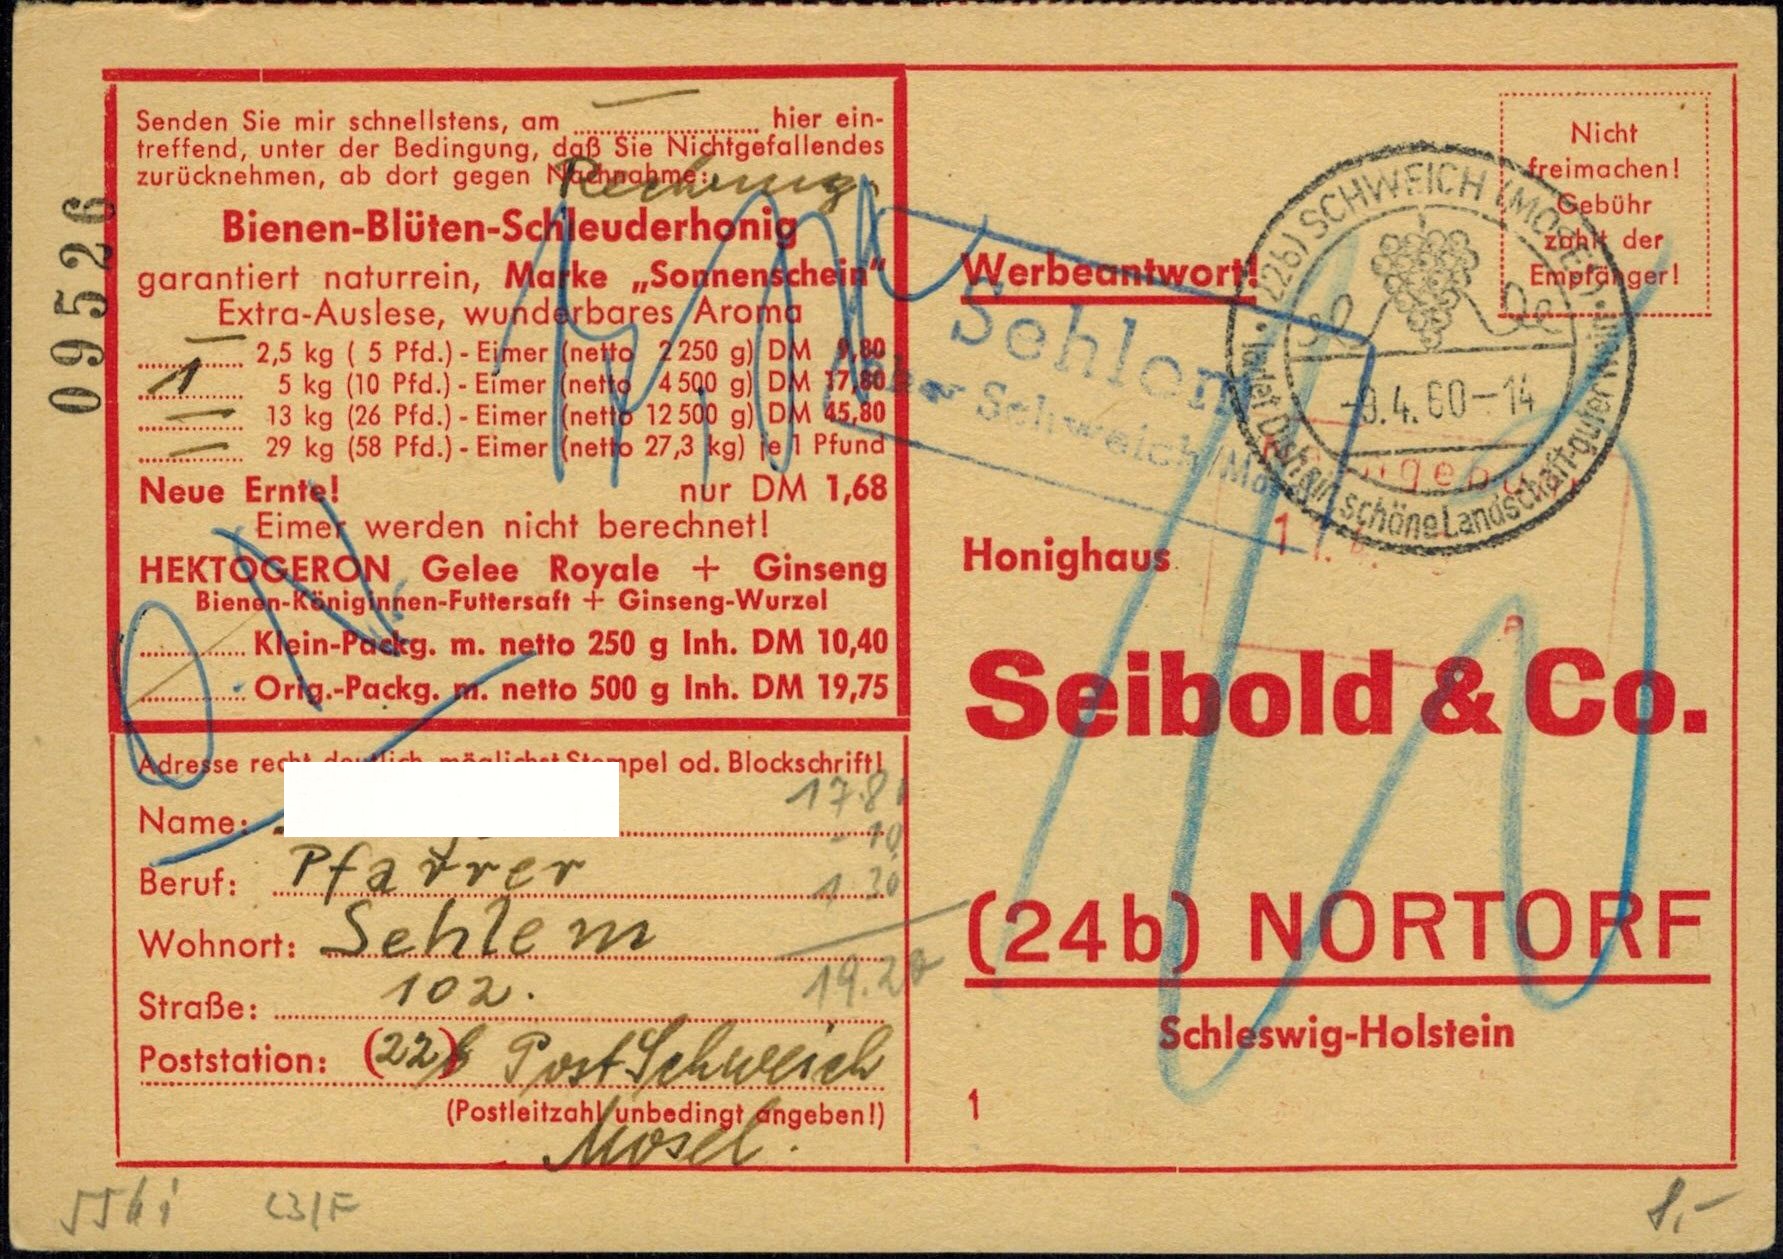 Senden Sie mir schnellstens, am .................... hier ein-
treffend, unter der Bedingung, daß Sie Nichtgefallendes
zurücknehmen, ab dort gegen Nachnahme:
Rechnung
Bienen-Blüten-Schleuderhonig
garantiert naturrein, Marke „Sonnenschein“
Extra-Auslese, wunderbares Aroma
2,5 kg ( 5 Pfd.) - Eimer (netto 2 250 g) DM 9,80
1 5 kg (10 Pfd.) - Eimer (netto 4 500 g) DM 17,80
13 kg (26 Pfd.) - Eimer (netto 12 500 g) DM 45,80
29 kg (58 Pfd.) - Eimer (netto 27,3 kg) je 1 Pfund
Neue Ernte! nur DM 1,68
Eimer werden nicht berechnet!
HEKTOGERON Gelee Royale + Ginseng
Bienen-Königinnen-Futtersaft + Ginseng-Wurzel
Klein-Packg. m. netto 250 g Inh. DM 10,40
Orig.-Packg. m. netto 500 g Inh. DM 19,75
09526
Adresse recht deutlich, möglichst Stempel od. Blockschrift!
Name:
Beruf: Pfarrer
Wohnort: Sehlem
Straße: 102.
Poststation: (22)b Post Schweich
(Postleitzahl unbedingt angeben!)
Mosel.
17.8
1 30
19.20
Werbeantwort!
Nicht
freimachen!
Gebühr
zahlt der
Empfänger!
(22b) SCHWEICH (MOSEL)
-9.4.60-14
ladet Dich ein schöne Landschaft-guter Wein
Sehlem
über Schweich/Mosel
Honighaus
Seibold & Co.
(24b) NORTORF
Schleswig-Holstein
1
8,-